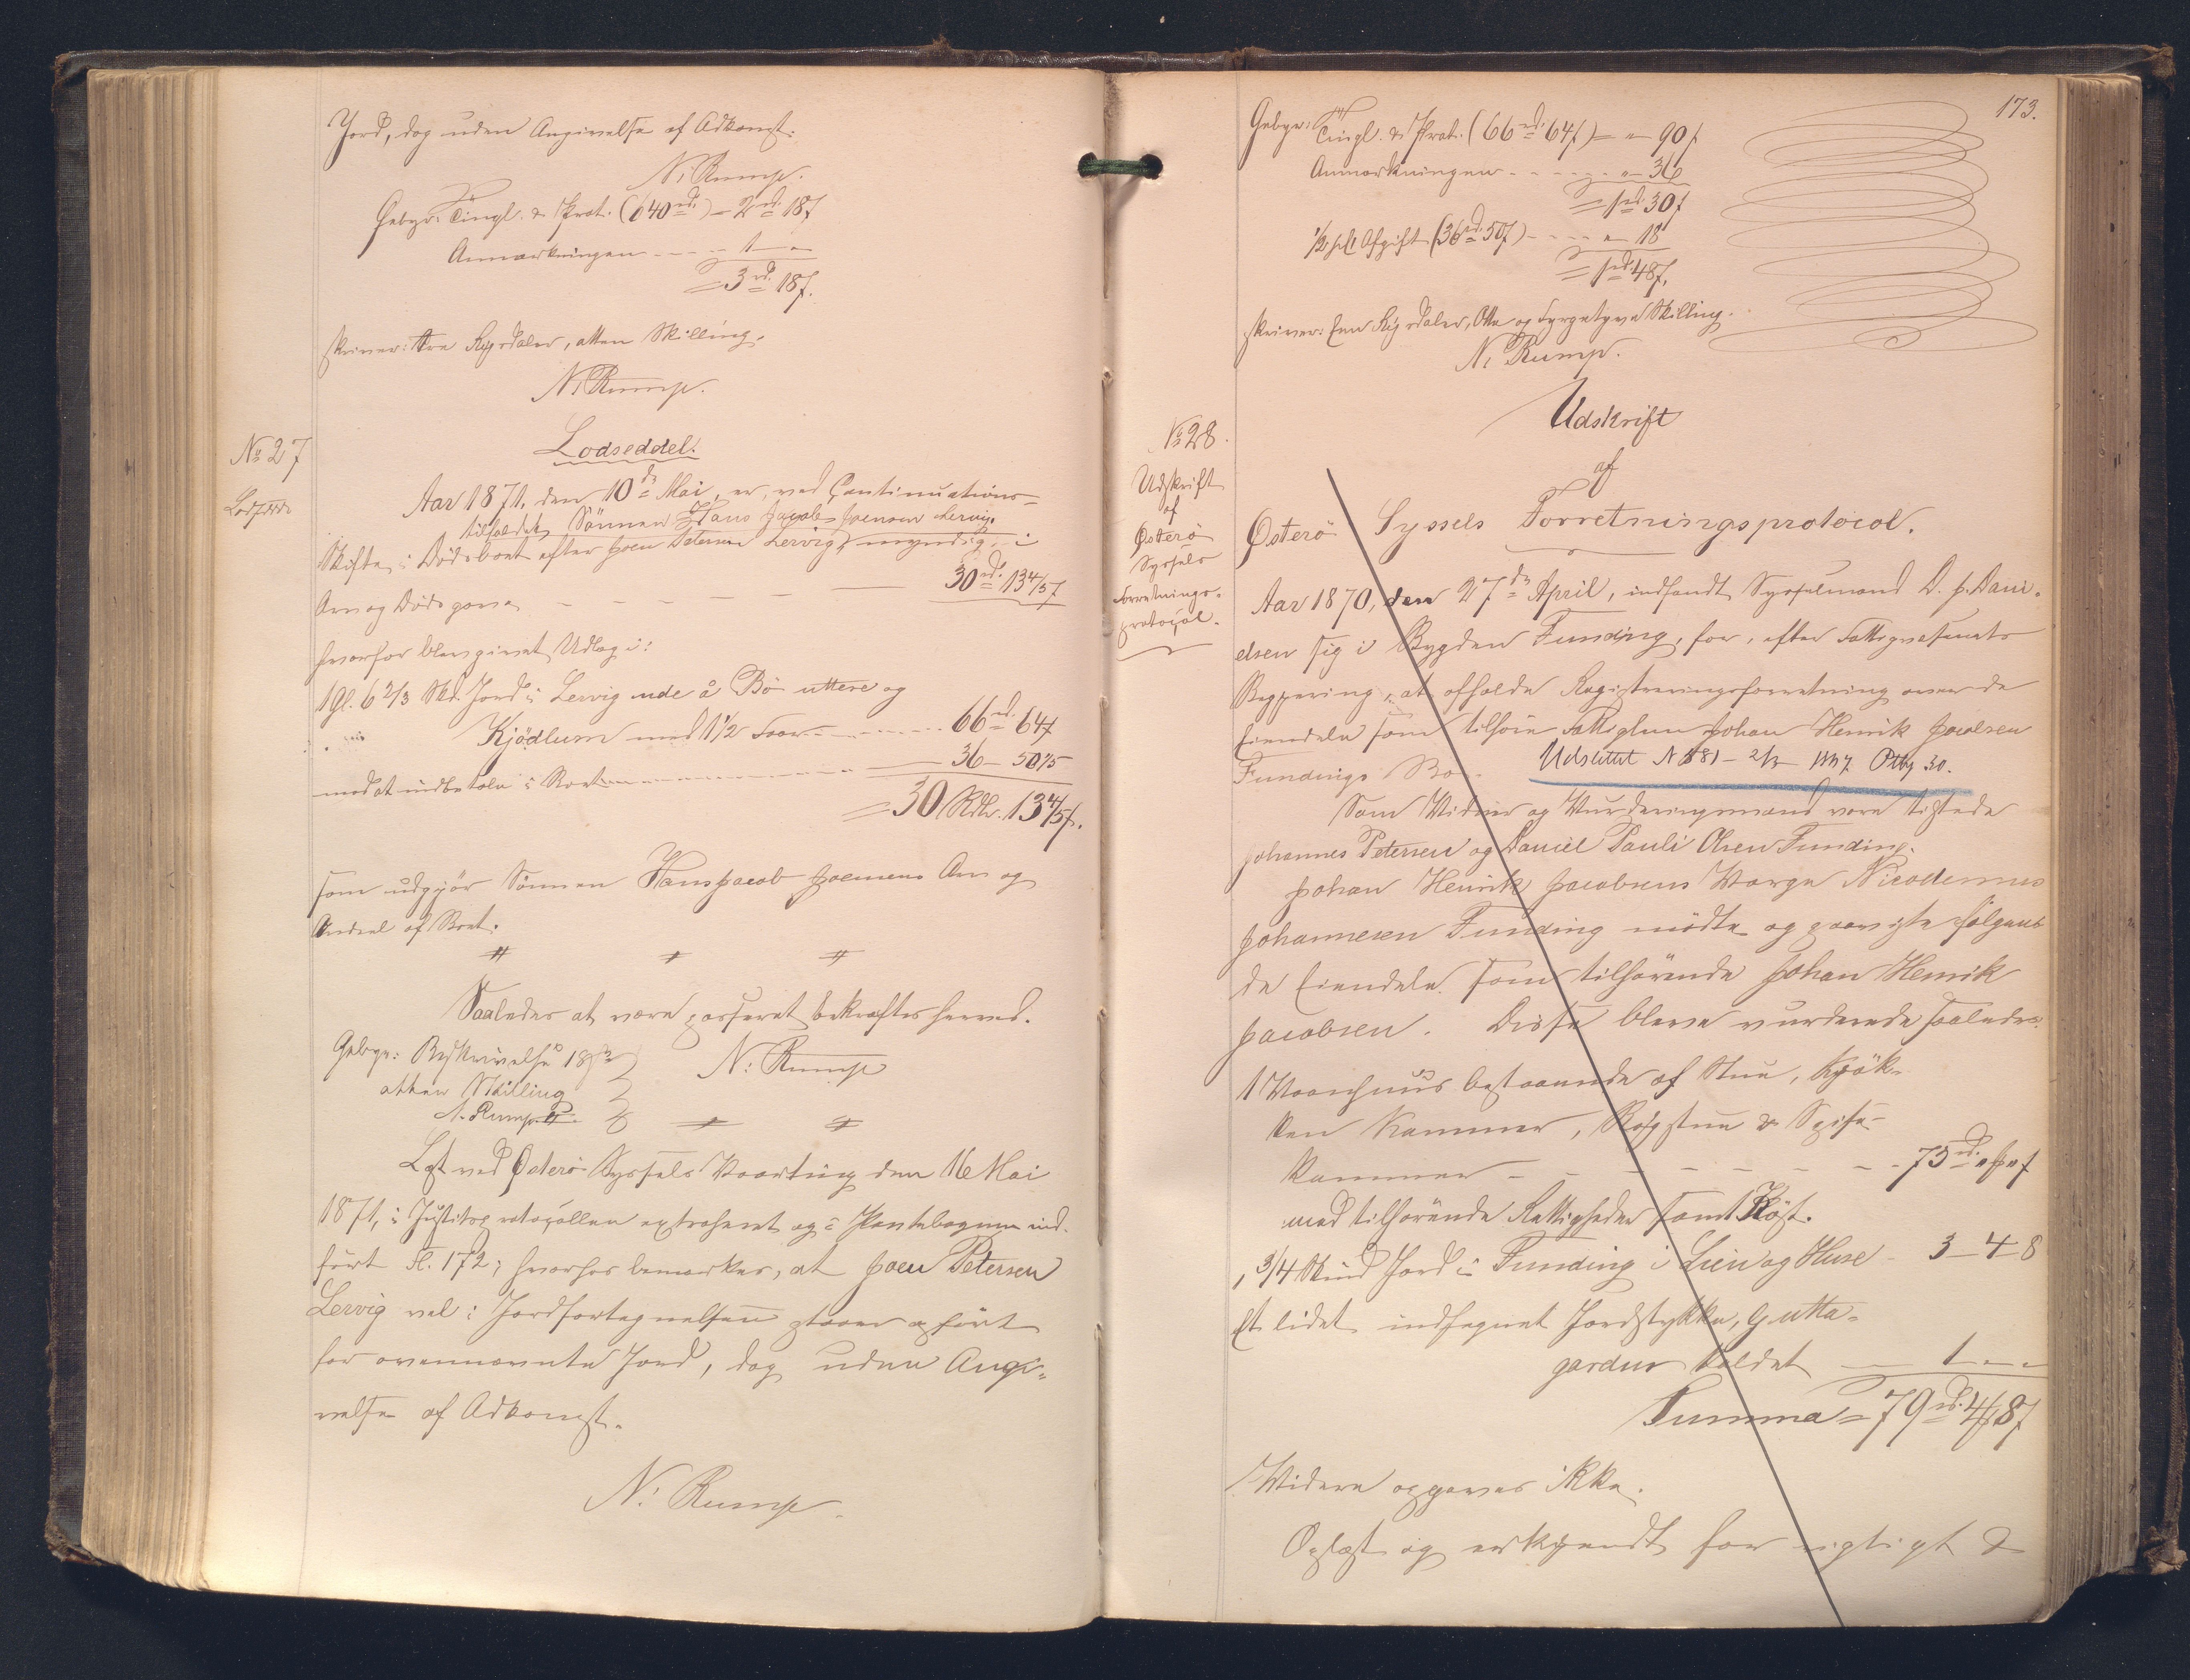 Jord, dog uden Angivelse af Adkomst.
N. Rump.
Gebyr: Tingl. & Prot. (640rd.) — 2rd 18ß
Anmærkningen - - - 1 — "
= 3rd. 18ß.
skriver: Tre Rigsdaler, atten Skilling.
N. Rump.
No 27
Lodseddel.
Aar 1871, den 10de Mai, er, ved Continuations-
tilfaldet Sönnen Hans Jacob Joensen Lervig,
Skifte i Dödsboet efter Joen Petersen Lervig, myndig, i
Arv og Dödsgave - - - - 30rd. 13 4/5ß
hvorfor blev givet Udlæg i:
1 Gl. 6 2/3 Skd. Jord i Lervig ude å Bö uttere og
Kjödlum med 1 1/2 Foer - - - 66rd. 64ß
mod at indbetale i Boet - - - 36 — 50 1/5
= 30 Rdlr. 13 4/5ß.
som udgjör Sönnen Hans Jacob Joensens Arv og
Andeel af Boet.
Saaledes at være passeret bekræftes herved.
Gebyr: Beskrivelse 18ß
atten Skilling
N. Rump
N. Rump
Læst ved Österö Syssels Vaarting den 16 Mai
1871, i Justitsprotocollen extraheret og i Pantebogen ind-
fört Fl. 172; hvorhos bemærkes, at Joen Petersen
Lervig vel i Jordfortegnelsen staaer opfört
for ovennævnte Jord, dog uden Angi-
velse af Adkomst.
N. Rump.
173.
Gebyr: Tingl. & Prot. (66rd. 64ß) — " — 90ß
Anmærkningen - - - " — 36
= 1rd. 30ß
1/2 pCt. Afgift (36rd. 50ß) - - - " — 18
= 1rd. 48ß.
skriver: Een Rigsdaler, Otte og Fyrgetyve Skilling.
N. Rump.
No 28.
Udskrift
af
Österö
Syssels
Forretnings-
protocol.
Udskrift
af
Österö Syssels Forretningsprotocol.
Aar 1870, den 27de April, indfandt Sysselmand D. J. Dani-
elsen sig i Bygden Funding, for, efter Fattigvæsenets
Begjering, at afholde Registreringsforretning over de
Eiendele som tilhöre Fattiglem Johan Henrik Jacobsen
Fundings Bo.
Udslettet N 881 — 2/3 — Ptbg 30.
Som Vidner og Vurderingsmænd vare tilstede
Johannes Petersen og Daniel Pauli Olsen Funding.
Johan Henrik Jacobsens Værge Nicodemus
Johannesen Funding mödte og paaviste fölgen-
de Eiendele som tilhörende Johan Henrik
Jacobsen. Disse bleve vurderede saaledes:
1 Vaaninghuus bestaaende af Stue, Kjök-
ken Kammer, Rögstue & Spise-
kammer - - - - 75rd. " " ß
med tilhörende Rettigheder samt Höst.
3/4 Skind Jord i Funding i Lien og Huse - 3 — 4 — 8
Et lidet indhegnet Jordstykke, Gutta-
gardur kaldet — 1 — " — "
Summa = 79rd. 4 8ß
Videre opgaves ikke.
Oplæst og erkjendt for rigtigt &